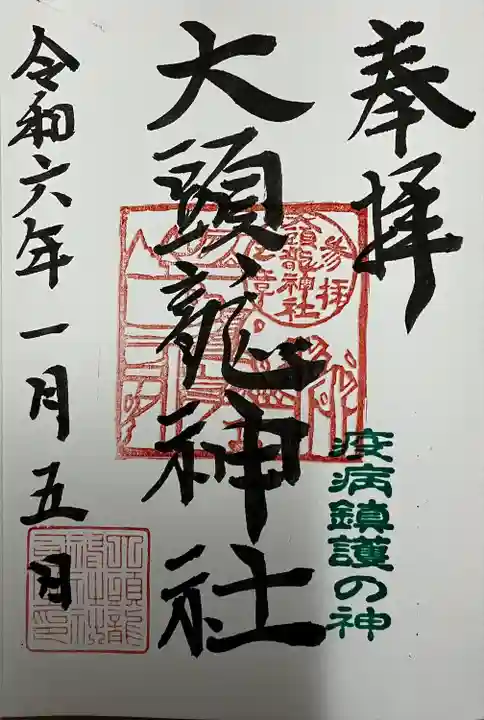 奉拝
疫病鎮護の神
大頭龍神社
参拝
大頭龍神社
令和六年一月五日